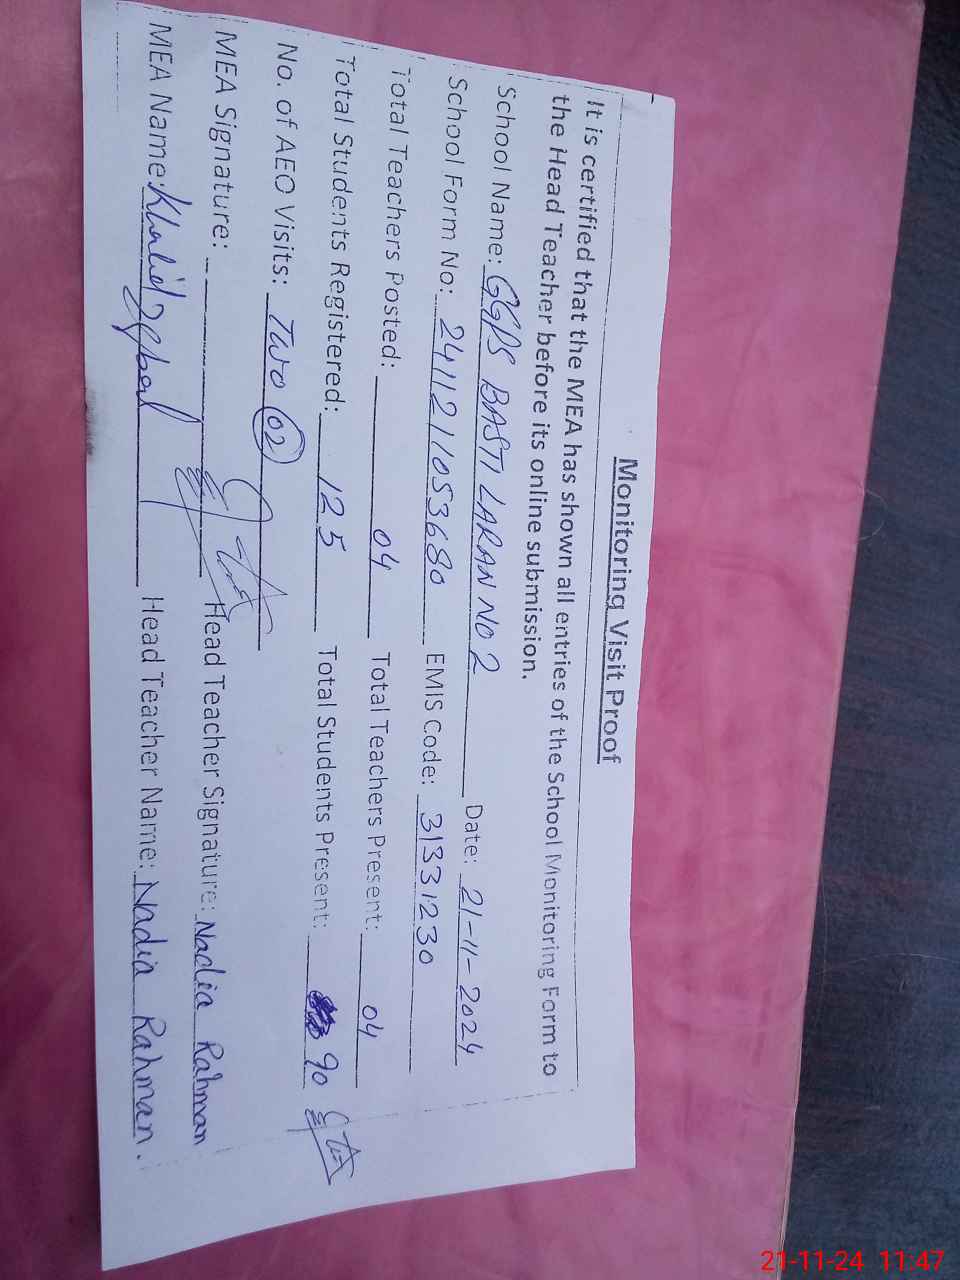 Monitoring Visit Proof
It is certified that the MEA has shown all entries of the School Monitoring Form to
the Head Teacher before its online submission.
School Name: GGPS BASTI LARAN NO 2 Date: 21-11-2024
School Form No: 2411211053680 EMIS Code: 31331230
Total Teachers Posted: 04 Total Teachers Present: 04
Total Students Registered: 125 Total Students Present: 90
No. of AEO Visits: Two 02
MEA Signature: Head Teacher Signature: Nadia Rahman
MEA Name: Khalid Iqbal Head Teacher Name: Nadia Rahman.
21-11-24 11:47